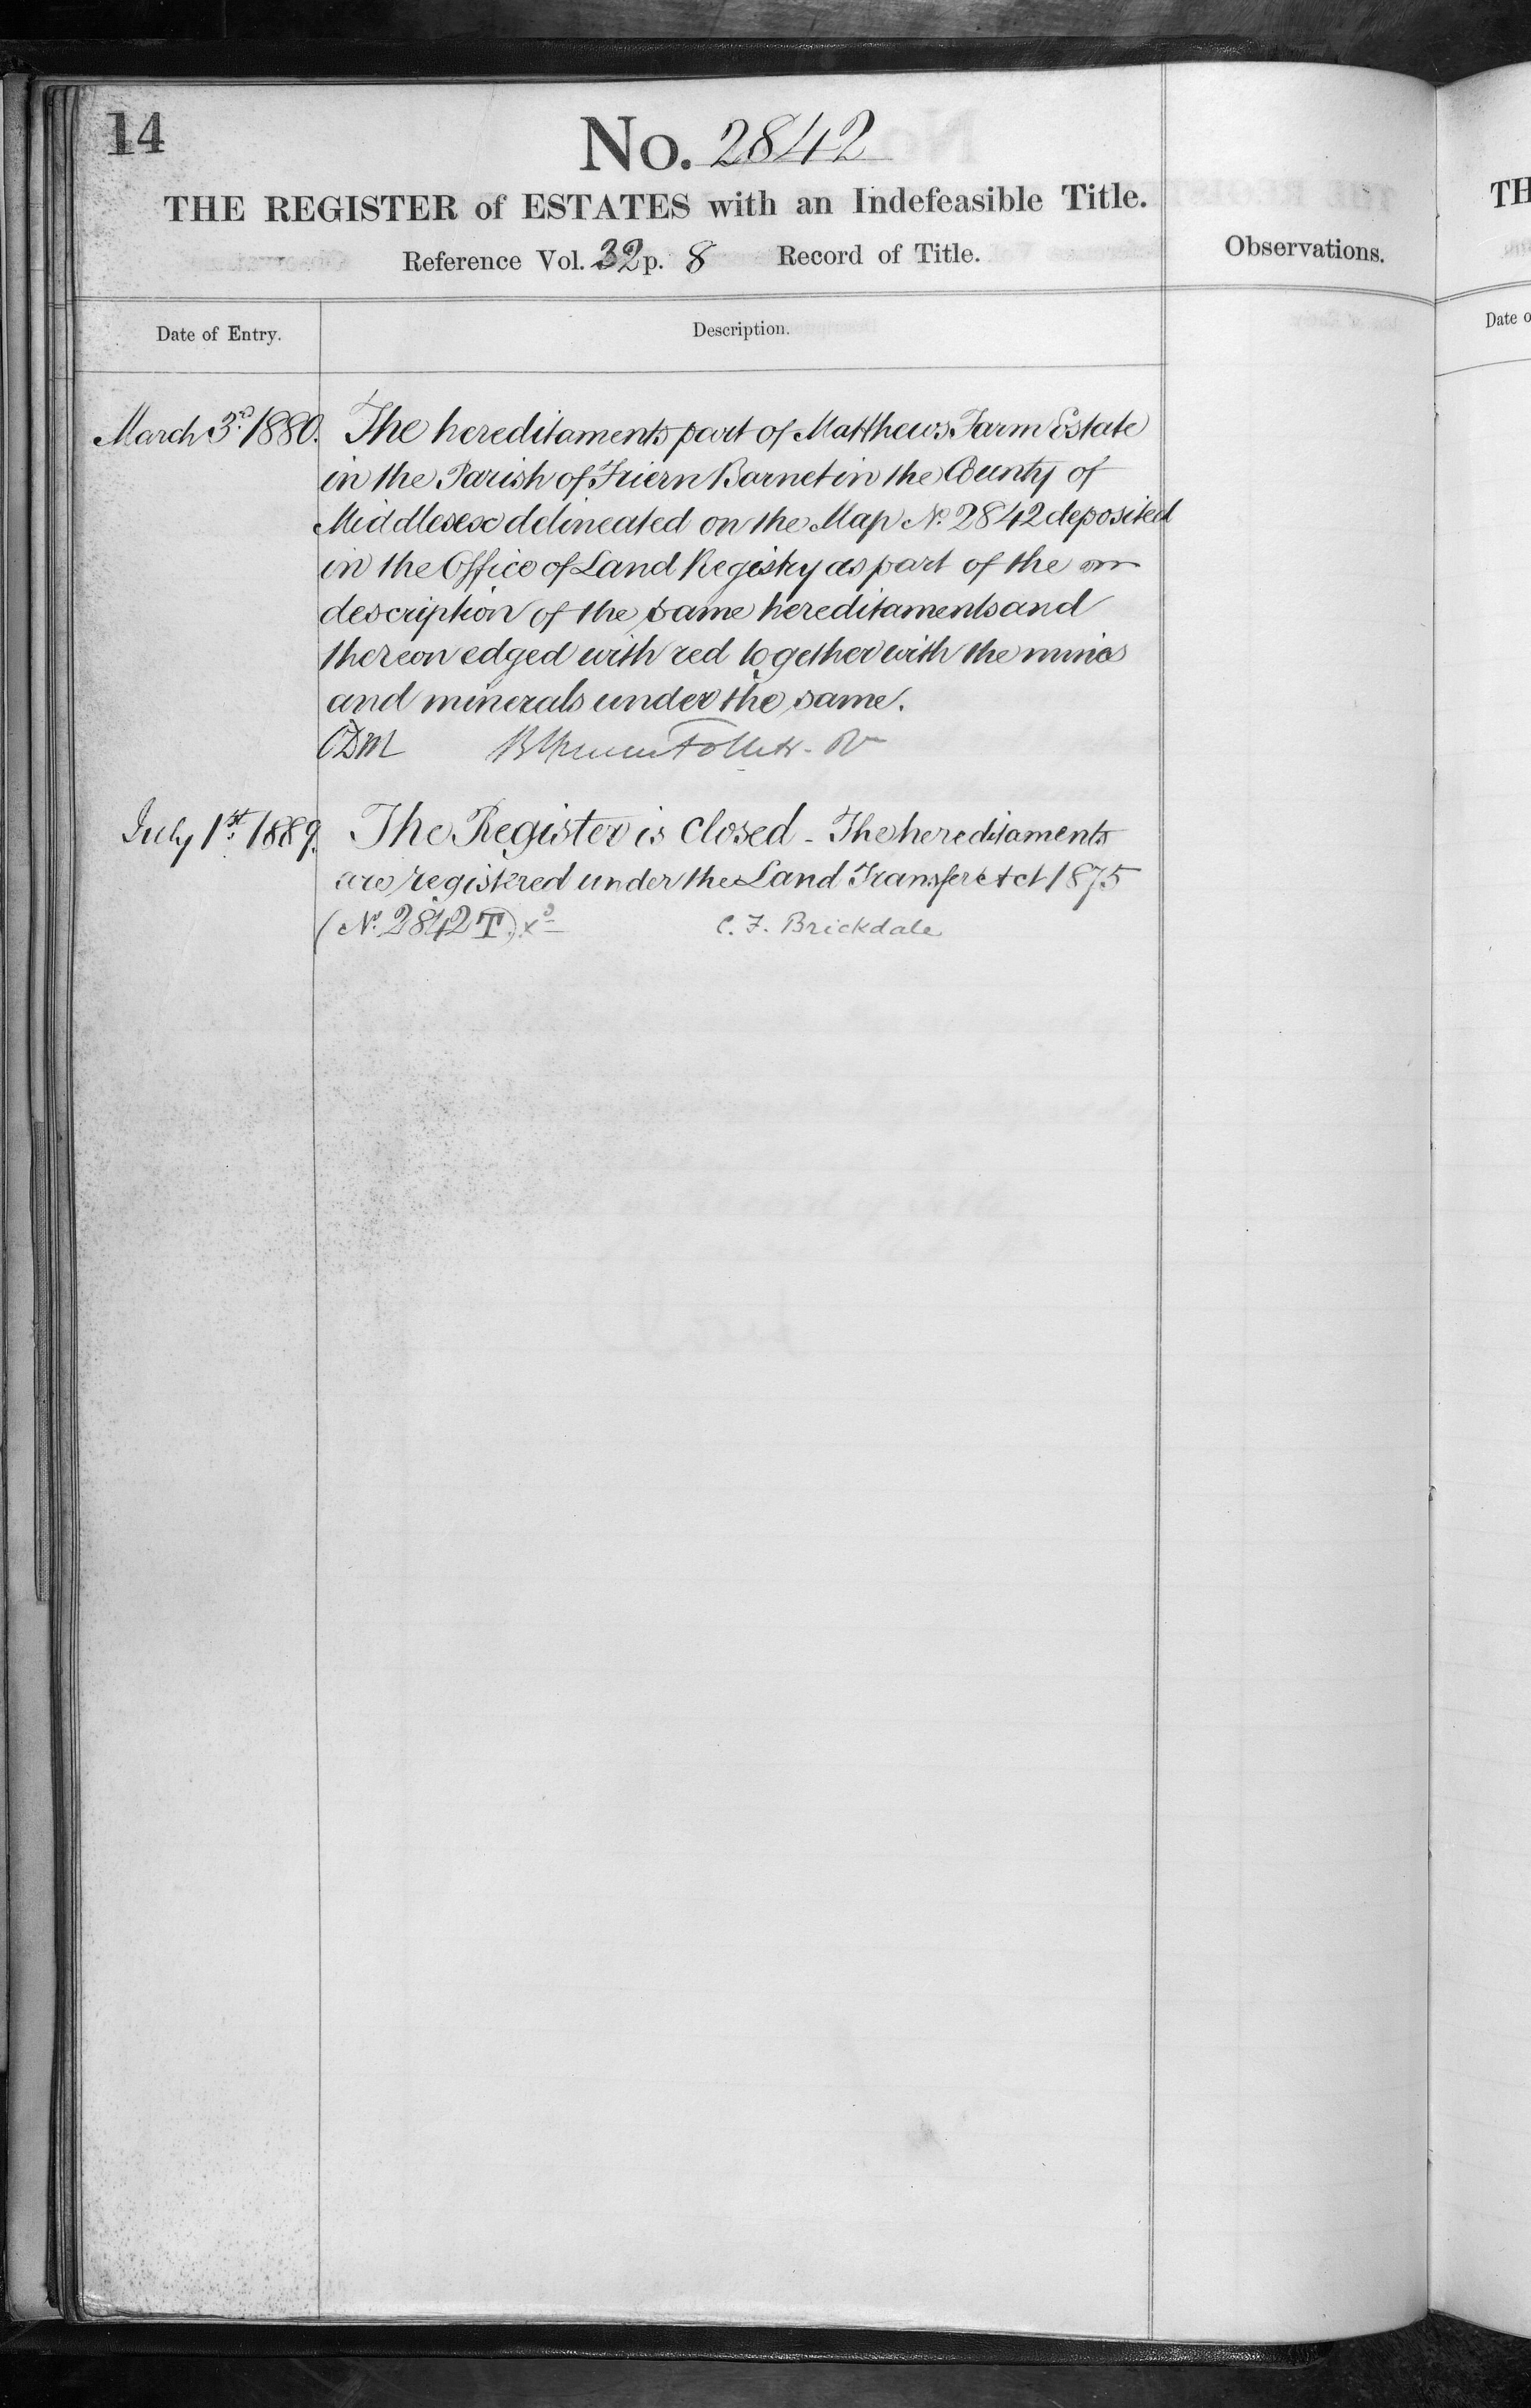 14
No. 2842
THE REGISTER of ESTATES with an Indefeasible Title.
Reference Vol. 32 p. 8 Record of Title.
Observations.
Date of Entry.
Description.
March 3d. 1880.
The hereditaments part of Matthews Farm Estate
in the Parish of Friern Barnet in the County of
Middlesex delineated on the Map No. 2842 deposited
in the Office of Land Registry as part of the
description of the same hereditaments and
thereon edged with red together with the mines
and minerals under the same.
July 1st. 1889.
The Register is closed - The hereditaments
are registered under the Land Transfer Act 1875
(No. 2842T)
C. F. Brickdale
TH
Date o